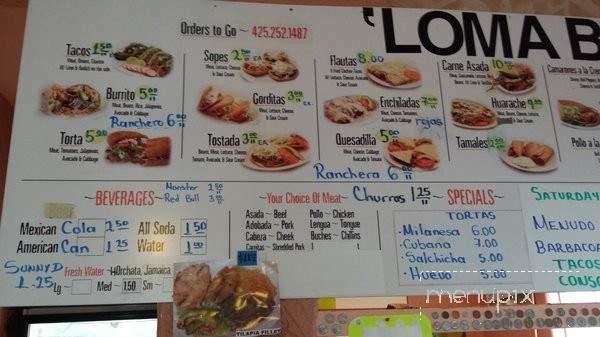 Orders to Go ~ 425.252.1487
LOMA B
Tacos 1.50
Meat, Beans, Cilantro
Burrito 5.00
Meat, Beans, Rice, Jalapenos,
Avocado & Cabbage
Ranchero 6.00
Torta 5.00
Meat, Tomatoes, Jalapenos,
Avocado & Cabbage
Sopes 2.50 EA
Meat, Lettuce, Cheese
& Sour Cream
Gorditas 3.00 EA
Meat, Lettuce, Cheese
& Sour Cream
Tostada 3.00 EA
Meat, Beans, Lettuce, Cheese,
Avocado & Sour Cream
Flautas 8.00
Lettuce, Cheese
& Sour Cream
Enchiladas 7.00
Meat, Cheese, Lettuce,
Avocado & Cabbage
rojas
Quesadilla 5.00
Meat, Cheese, Lettuce,
Avocado & Tomato
Ranchera 6.00
Carne Asada 10.00
Huarache
Meat, Beans, Lettuce, Cheese,
Avocado & Sour Cream
Tamales
Camarones a la Crema
Pollo a la
~BEVERAGES~
Monster 2.50
Red Bull 3.00
Mexican Cola 2.50
American Can 1.25
All Soda 1.50
Water 1.00
SUNNYD
1.25
Fresh Water ~ Horchata, Jamaica
Lg
Med ~ 1.50
Sm ~
~Your Choice Of Meat~
Asada ~ Beef
Adobada ~ Pork
Cabeza ~ Cheek
Carnitas ~ Shredded Pork
Pollo ~ Chicken
Lengua ~ Tongue
Buches ~ Chitlins
Churros 1.25
~SPECIALS~
TORTAS
Milanesa 6.00
Cubana 7.00
Salchicha 5.00
Huevo 5.00
SATURDAY
MENUDO
BARBACOA
TACOS
CONSO
TILAPIA FILLET
menupix